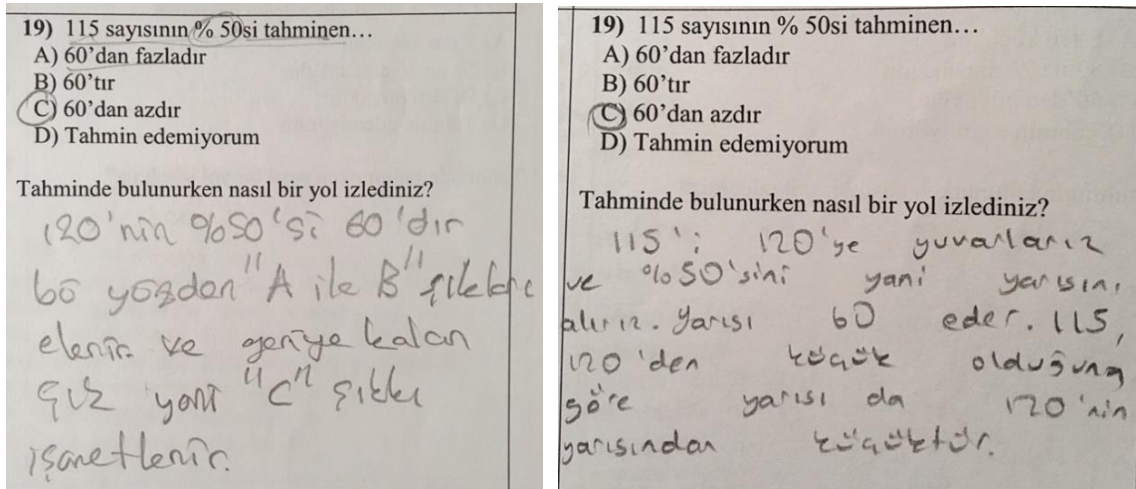 19) 115 sayısının % 50si tahminen…
A) 60’dan fazladır
B) 60’tır
C) 60’dan azdır
D) Tahmin edemiyorum
Tahminde bulunurken nasıl bir yol izlediniz?
120'nin %50'si 60'dır
bö yözden "A ile B" şıkları
elenir ve geriye kalan
şık yani "C" şıkkı
işaretlenir.
19) 115 sayısının % 50si tahminen…
A) 60’dan fazladır
B) 60’tır
C) 60’dan azdır
D) Tahmin edemiyorum
Tahminde bulunurken nasıl bir yol izlediniz?
115'i 120'ye yuvarlarız
ve %50'sini yani yarısını
alırız. Yarısı 60 eder. 115,
120'den küçük olduğuna
göre yarısı da 120'nin
yarısından küçüktür.